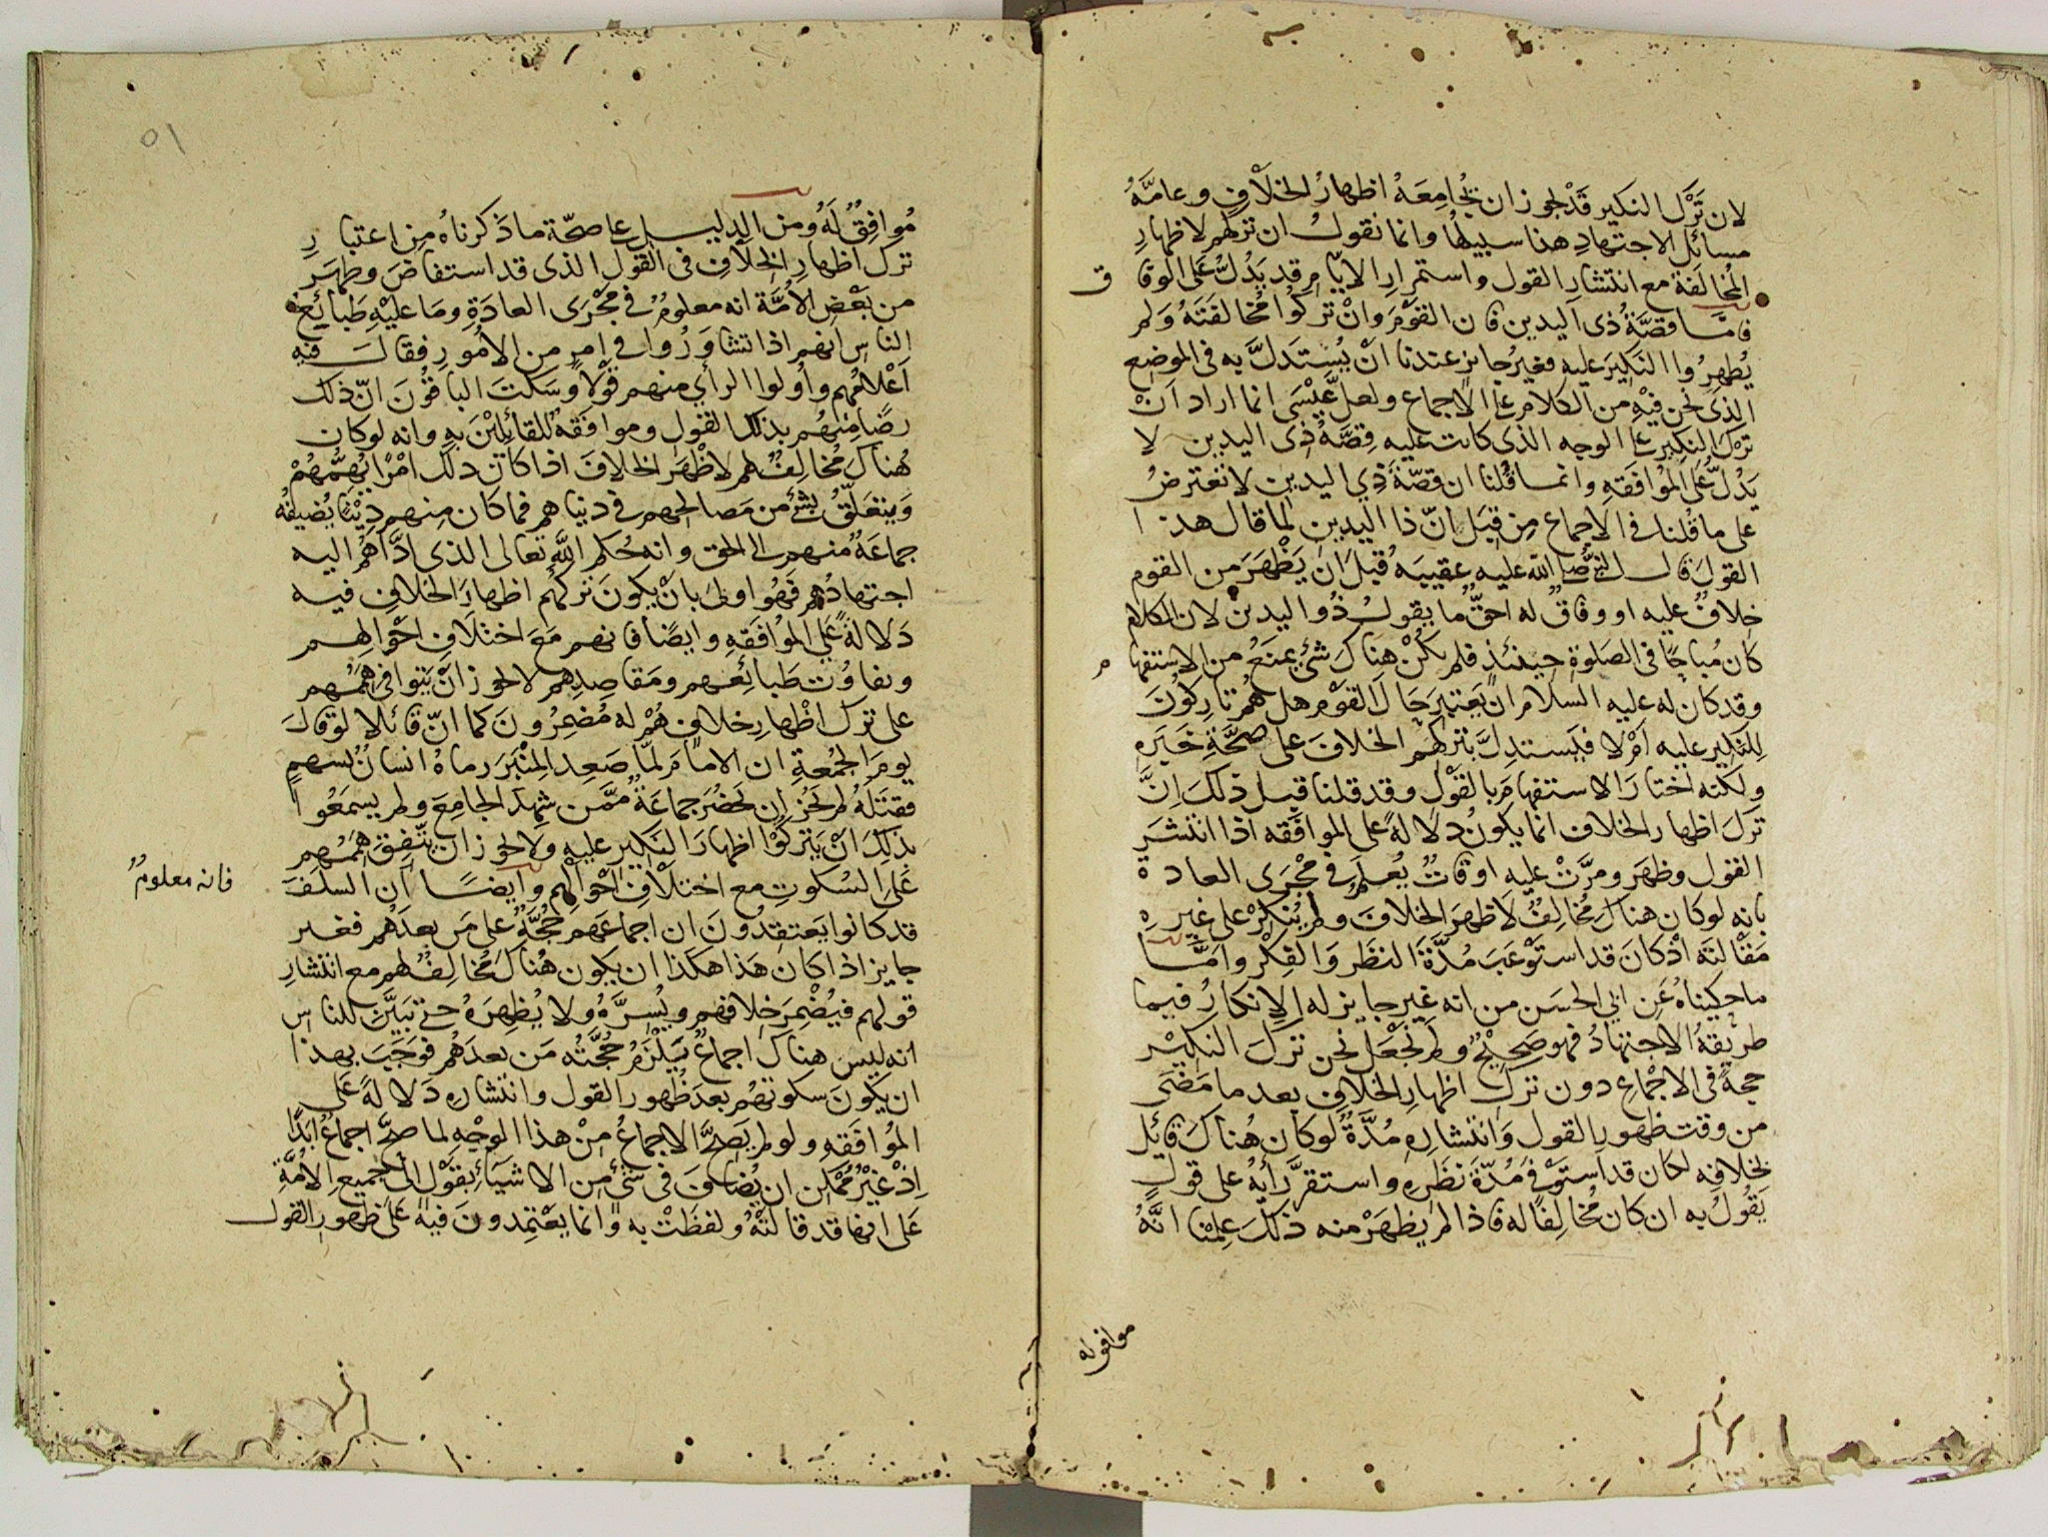 لان تَرْك النكير قَدْ يجوز ان يُجامِعَهُ اظهارُ الخلافِ وعامَّةُ
مسائل الاجتهادِ هذا سبيلها وانما نقولُ ان تركهم لاظهارِ
المُخالَفة مع انتشارِ القول واستمرارِ الايّامِ قد يَدُلُّ عَلى الوفاق
فامَّا قصَّةُ ذى اليدين فان القوْمَ وانْ تركُوا مُخالفَتَهُ وَلم
يُظهِرُوا النَكِيرَ عليهِ فغيرُ جايزٍ عندنا انْ يُستَدَلَّ به فى الموضع
الذى نحن فيْهِ من الكلام على الاجماع ولعلّ عِيْسَى انما اراد انْ
ترك النكير على الوجه الذى كانت عليه قِصَّةُ ذِى اليدين لا
يَدُلُّ عَلَى المُوافَقَهِ وانما قُلنا ان قصّةَ ذِي اليدين لا تعترضُ
على ما قُلنا فى الاجماع مِن قِبَل انّ ذا اليدين لما قال هذا
القولَ قال النبىّ صلى الله عليه عقيبَهُ قبل ان يَظْهَرَ من القوم
خلافٌ عليه او وفاقٌ له احقٌّ ما يقولُ ذُو اليدين لان الكلام
كان مُباحًا فى الصَلوةِ حينئذٍ فلم يكُنْ هناكَ شئ يمنَعُ من الاستفهام
وقد كان له عليه السلام ان يَعتبرَ حالَ القوْم هل هُم تاركُونَ
لِلنكِيرِ عليه اَمْ لا فيَستدِلَّ بتركِهم الخلافَ على صحَّةِ خَبَرِهِ
ولكنه اختارَ الاستفهامَ بالقَوْلِ وقد قلنا قبل ذلك انَّ
تركَ اظهار الخلاف انما يكونُ دلالةً على الموافَقه اذا انتشَرَ
القول وظهَرَ ومرَّتْ عليهِ اوقاتٌ يُعلَمُ فى مَجْرَى العادة
بانه لو كان هناكَ مُخالِفٌ لاظهرَ الخلافَ ولم يُنكِرْ على غيرِهِ
مَقالتَه اذ كانَ قد استَوْعَبَ مُدَّةَ النظَر وَالفِكْر وامَّا
ما حكيناهُ عَن ابي الحسَن من انه غير جايز له الانكارُ فيما
طريقهُ الاجتهادُ فهو صَحِيْحٌ ولم نَجْعَل نحن تركَ النكِيْر
حجةً فى الاجْماعِ دون ترك اظهارِ الخلافِ بعد ما مَضَى
من وقت ظهورِ القول وَانتشارِهِ مُدَّةٌ لو كان هُناك قائِل
بخلافِهِ لكان قد استَوْفى مُدّةَ نظَرِهِ واستقرَّ رَأيُهُ على قولٍ
يَقُولُ به ان كان مُخالِفًا له فاذا لم يَظهَرْ منه ذلكَ عَلِمْنا انَّهُ
موافق له
٥١
مُوافِقٌ لَهُ ومن الدليل على صحّة ما ذكرناهُ مِن اعتبارِ
ترك اظهارِ الخلافِ فى القَوْلِ الذى قد استفاضَ وظهَرَ
من بَعْض الأمَّة انه معلومٌ فى مَجْرَى العادَةِ وما عليْهِ طبائِع
الناس انهم اذا تشاوَرُوا في امرٍ من الامُورِ فقالَ فيهِ
اَعْلامُهم واولوا الرأي منهم قوْلاً وَسَكَتَ الباقُونَ انّ ذلك
رضًا منهم بذلك القولِ وموافقةٌ للقائِلِيْنَ بهِ وانه لو كان
هُناكَ مُخالِفٌ لهم لاظْهَرَ الخلافَ اذا كان ذلك امْرًا يُهِمُّهُمْ
وَيتعلّقُ بشئ من مَصالحِهم فى دنياهم فما كان منهم دِيْنًا يُضيفُه
جماعَةٌ منهم الى الحق وانه حُكم اللّه تعالى الذى ادَّاهُم اليه
اجتهادُهم فَهُو اولى بانْ يكونَ تركُهم اظهارَ الخلاف فيه
دَلالةً عَلي المُوافَقهِ وايضًا فانهم مَعَ اختلافِ احْوالِهم
وتفاوُت طَبائِعهم ومَقاصِدِهم لا يجوز انْ يَتوافى هِمَمُهم
على ترك اظْهارِ خلافٍ هُمْ له مُضمِرُونَ كما انّ قائلا لو قالَ
يومَ الجُمعةِ ان الامامَ لمّا صَعِدَ المِنْبَرَ رماهُ انسانٌ بسهمٍ
فقتلهُ لم يَجُز ان يَحضُرَ جماعَةٌ ممَّن شهدَ الجامِعَ ولم يسمَعُوا
بذلك اَنْ يَتركُوْا اظهارَ النَكِيرِ عليهِ ولا يجوز ان يَتّفِقَ هِمَمُهم
عَلى السُكوتِ مع اختلافِ احْوالِهم وايضًا ان السلَفَ
فانه معلومٌ
قد كانوا يَعتقِدُونَ ان اجماعَهم حُجَّةٌ على مَن بعدَهُم فغير
جايز اذا كانَ هَذا هكَذا ان يكون هُناكَ مُخالِفٌ لهم مع انتشارِ
قولهم فيُضْمِرَ خلافهم ويُسِرَّهُ ولا يُظهِرَهُ حتى تبَيَّنَ للناس
انه ليس هناكَ اجماعٌ يَلْزَمُ حُجَّتُه مَن بعدَهُم فوَجَبَ بهذا
ان يكونَ سكوتهُم بعدَ ظُهورِ القول وانتشارِهِ دَلالةً عَلى
المُوافَقهِ ولو لم يَصِحَّ الاجماعُ مِنْ هذا الوجْهِ لما صحَّ اجماعٌ ابَدًا
اِذْ غيْرُ مُمكن ان يُضافَ فى شئ من الاشيآءِ بقَوْل الى جميعِ الامَّةِ
عَلى انها قد قالتهُ ولفظَتْ به وانما يعْتمِدونَ فيه عَلى ظهور القول